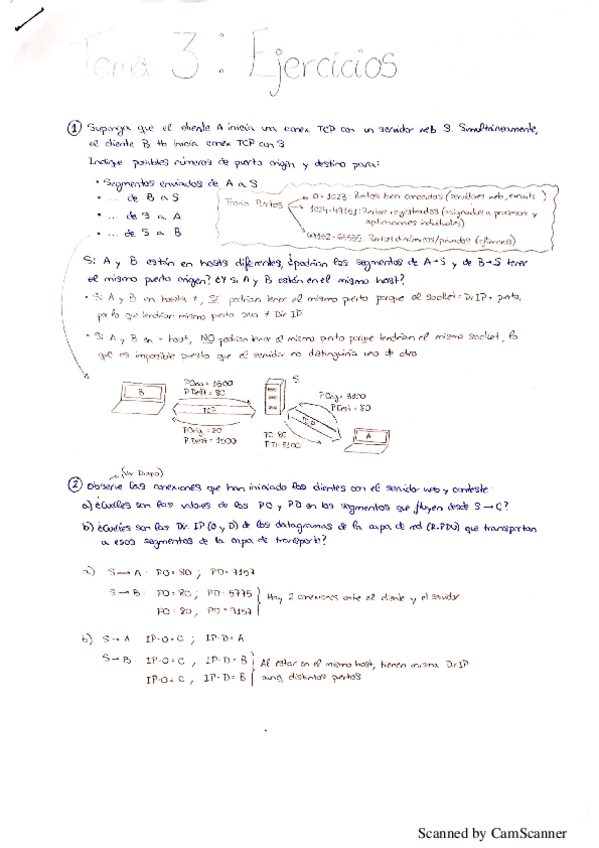 Tema 3: Ejercicios
① Suponga que el cliente A inicia una conex TCP con un servidor web S. Simultáneamente,
el cliente B tb inicia conex TCP con S
Indique posibles números de puerto origen y destino para:
• Segmentos enviados de A a S
• ... de B a S
• ... de S a A
• ... de S a B
Teoría Puertos
0-1023: Puertos bien conocidos (servidores web, emails)
1024-49151: Puertos registrados (asignados a procesos y
aplicaciones individuales)
49152-65535: Puertos dinámicos/privados (efímeros)
Si A y B están en hosts diferentes, ¿podrían los segmentos de A→S y de B→S tener
el mismo puerto origen? ¿Y si A y B están en el mismo host?
• Si A y B en hosts ≠, SÍ podrían tener el mismo puerto porque el socket = Dir IP + puerto,
por lo que tendrían mismo puerto pero ≠ Dir IP
• Si A y B en = host, NO podrían tener el mismo puerto porque tendrían el mismo socket, lo
que es imposible puesto que el servidor no distinguiría uno de otro.
B
P Dest = 80
TCP
POrig = 80
S
POrig = 3100
P Dest = 80
TCP
PO: 80
PD: 3100
A
(Ver Diapo)
② Observe las conexiones que han iniciado los clientes con el servidor web y conteste:
a) ¿Cuáles son los valores de los PO y PD en los segmentos que fluyen desde S→C?
b) ¿Cuáles son las Dir. IP (O y D) de los datagramas de la capa de red (R-PDU) que transportan
a esos segmentos de la capa de transporte?
a) S→A: PO=80; PD=9157
S→B: PO=80; PD=5775
PO=80, PD=9157
Hay 2 conexiones entre el cliente y el servidor
b) S→A IP-O=C; IP-D=A
S→B IP-O=C, IP-D=B
IP-O=C, IP-D=B
Al estar en el mismo host, tienen misma Dir IP
aunq distintos puertos
Scanned by CamScanner